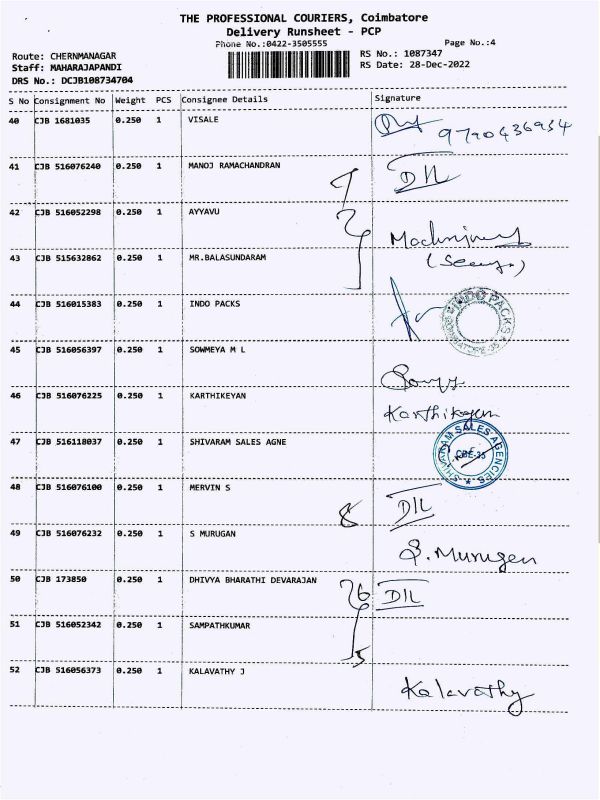 THE PROFESSIONAL COURIERS, Coimbatore
Delivery Runsheet - PCP
Phone No.:0422-3505555
Page No.:4
Route: CHERNMANAGAR
Staff: MAHARAJAPANDI
DRS No.: DCJB108734704
RS No.: 1087347
RS Date: 28-Dec-2022
S No Consignment No Weight PCS Consignee Details Signature
40 CJB 1681035 0.250 1 VISALE 9790436934
41 CJB 516076240 0.250 1 MANOJ RAMACHANDRAN DIL
42 CJB 516052298 0.250 1 AYYAVU
43 CJB 515632862 0.250 1 MR.BALASUNDARAM
44 CJB 516015383 0.250 1 INDO PACKS INDO PACKS
45 CJB 516056397 0.250 1 SOWMEYA M L
46 CJB 516076225 0.250 1 KARTHIKEYAN Karthikeyan
47 CJB 516118037 0.250 1 SHIVARAM SALES AGNE SHIVARAM SALES AGENCIES CBE-35
48 CJB 516076100 0.250 1 MERVIN S 8 DIL
49 CJB 516076232 0.250 1 S MURUGAN S. Murugen
50 CJB 173850 0.250 1 DHIVYA BHARATHI DEVARAJAN DIL
51 CJB 516052342 0.250 1 SAMPATHKUMAR
52 CJB 516056373 0.250 1 KALAVATHY J Kalavathy